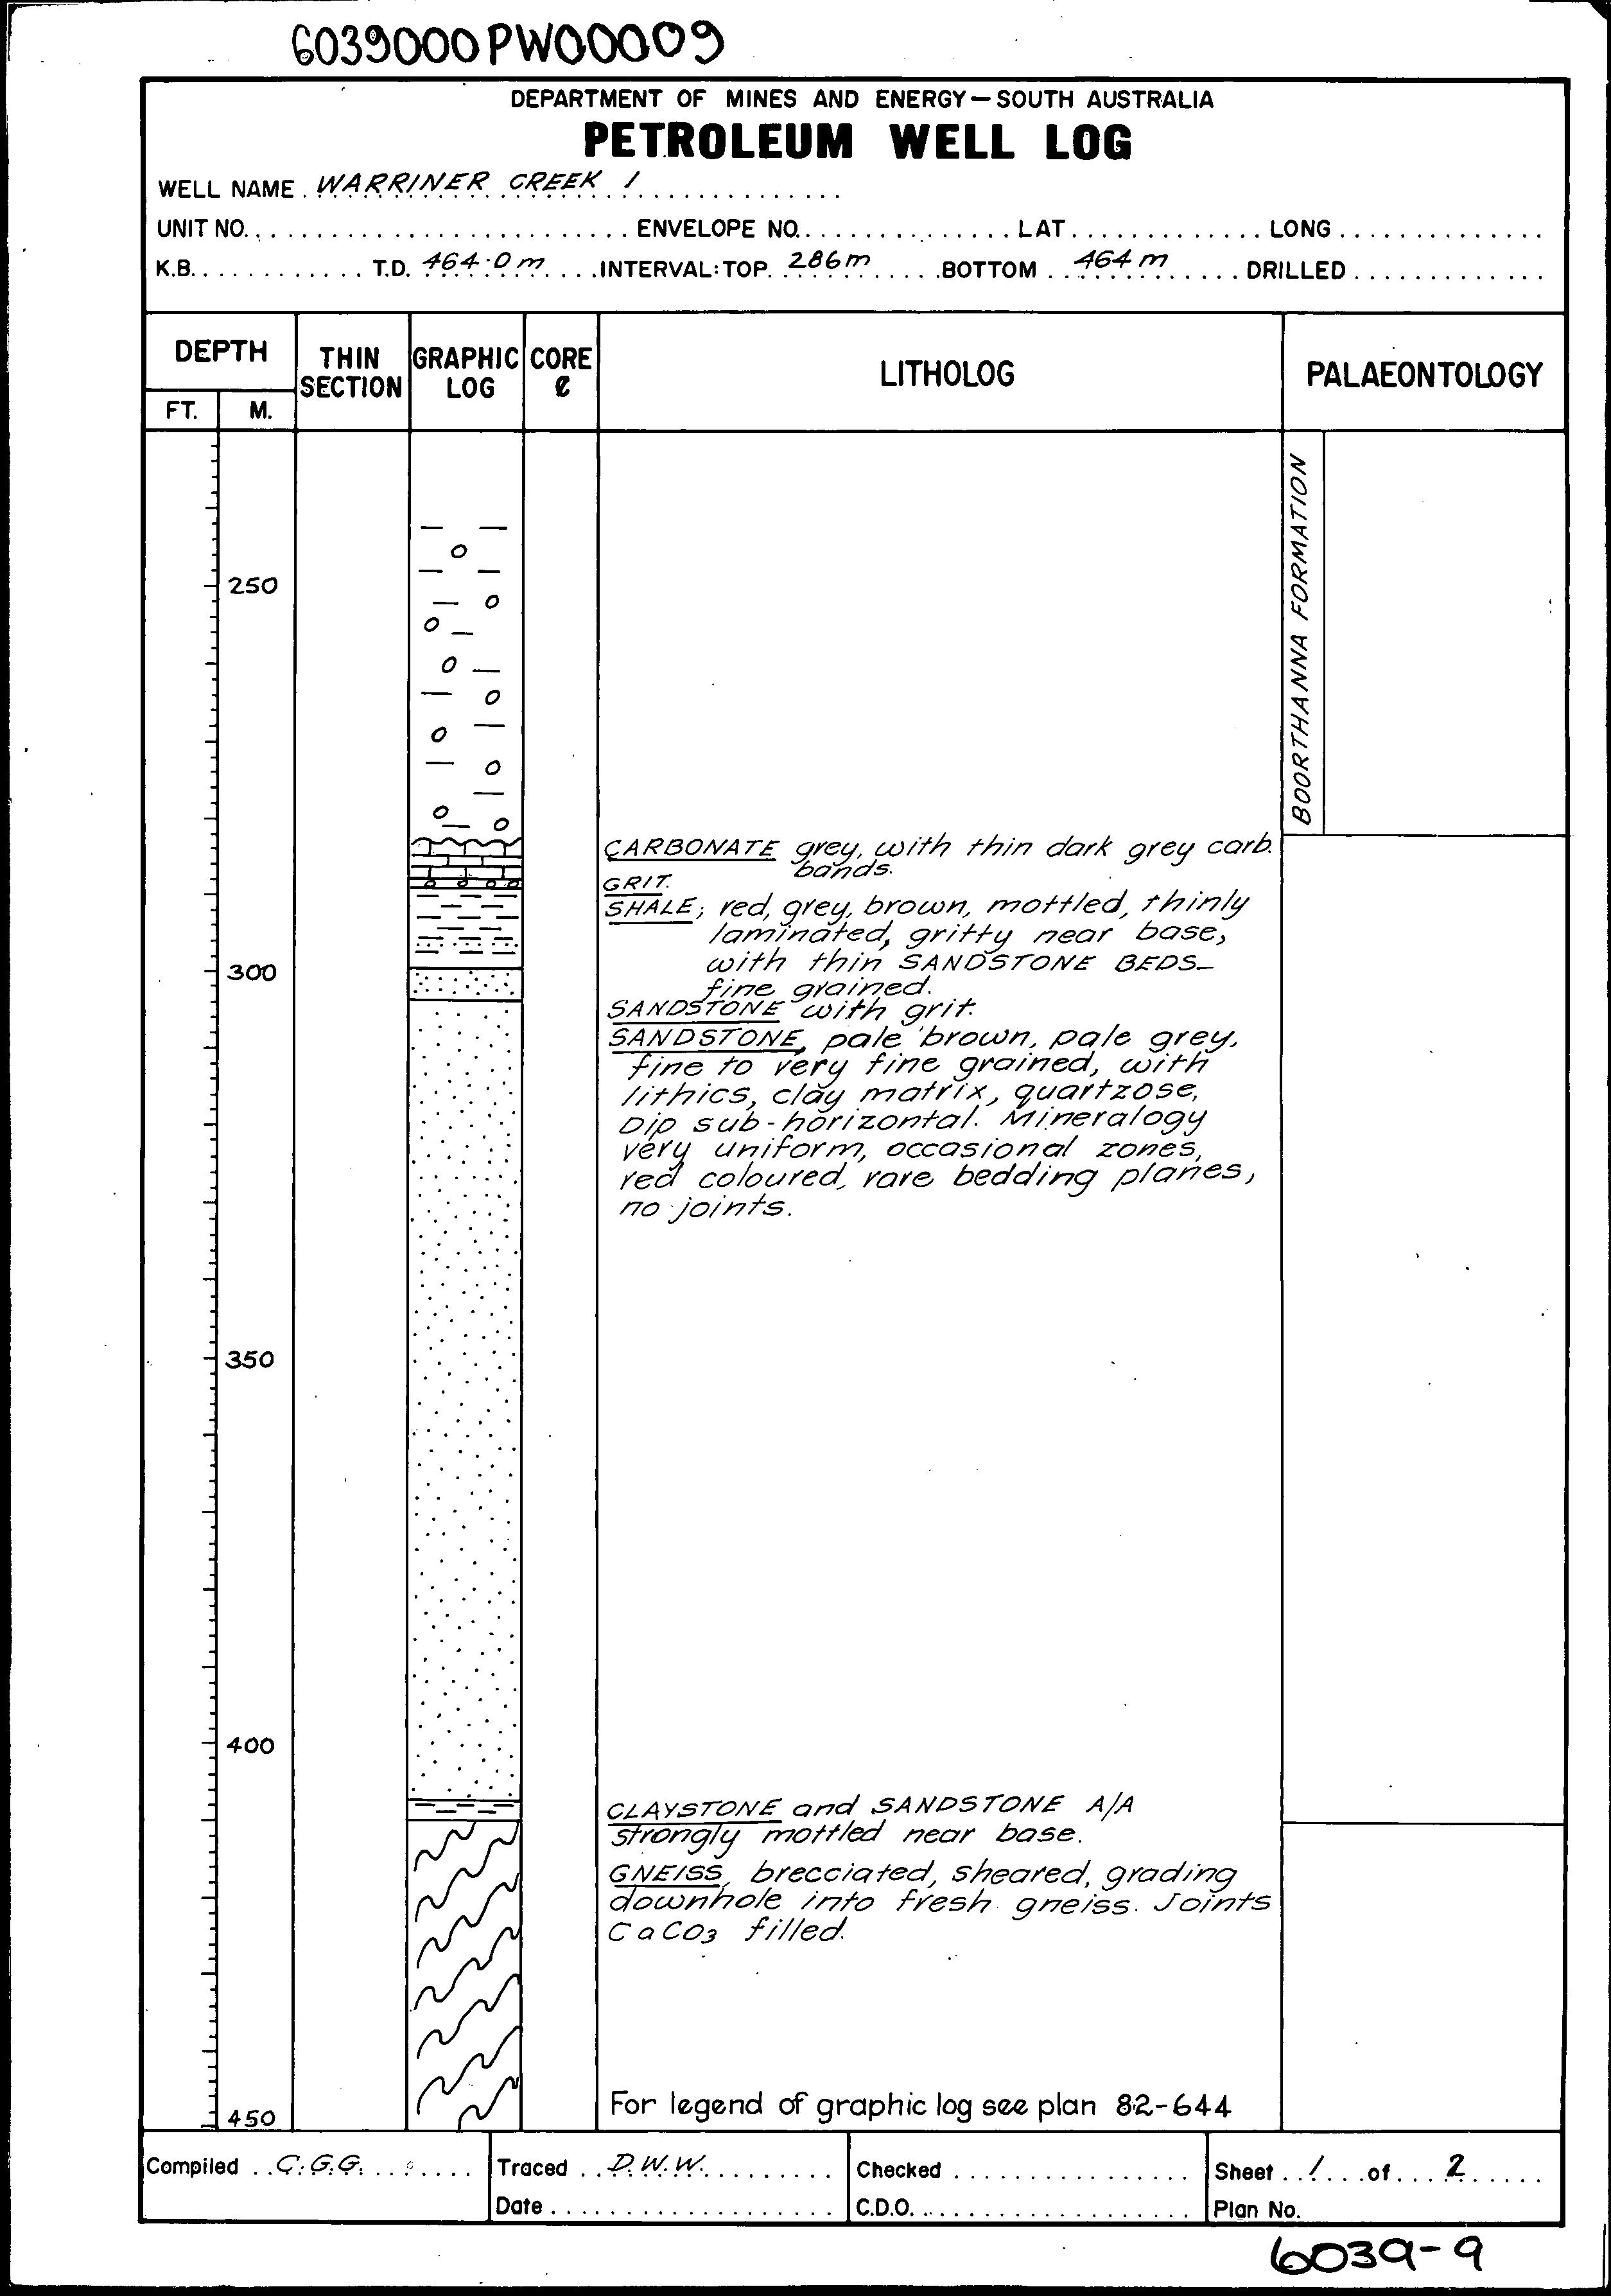 6039000PW00009
DEPARTMENT OF MINES AND ENERGY — SOUTH AUSTRALIA
PETROLEUM WELL LOG
WELL NAME WARRINER CREEK 1
UNIT NO. ENVELOPE NO. LAT. LONG
K.B. T.D. 464.0 m INTERVAL: TOP. 286m BOTTOM 464 m DRILLED
DEPTH
FT. M.
THIN SECTION
GRAPHIC LOG
CORE
LITHOLOG
PALAEONTOLOGY
BOORTHANNA FORMATION
250
CARBONATE grey, with thin dark grey carb.
bands.
GRIT.
SHALE; red, grey, brown, mottled, thinly
laminated, gritty near base,
with thin SANDSTONE BEDS—
fine grained.
300
SANDSTONE with grit.
SANDSTONE, pale brown, pale grey,
fine to very fine grained, with
lithics, clay matrix, quartzose,
Dip sub-horizontal. Mineralogy
very uniform, occasional zones,
red coloured, rare bedding planes,
no joints.
350
400
CLAYSTONE and SANDSTONE A/A
strongly mottled near base.
GNEISS, brecciated, sheared, grading
downhole into fresh gneiss. Joints
CaCO3 filled.
For legend of graphic log see plan 82-644
450
Compiled C.G.G. Traced D.W.W. Checked Sheet 1 of 2
Date C.D.O. Plan No.
6039-9